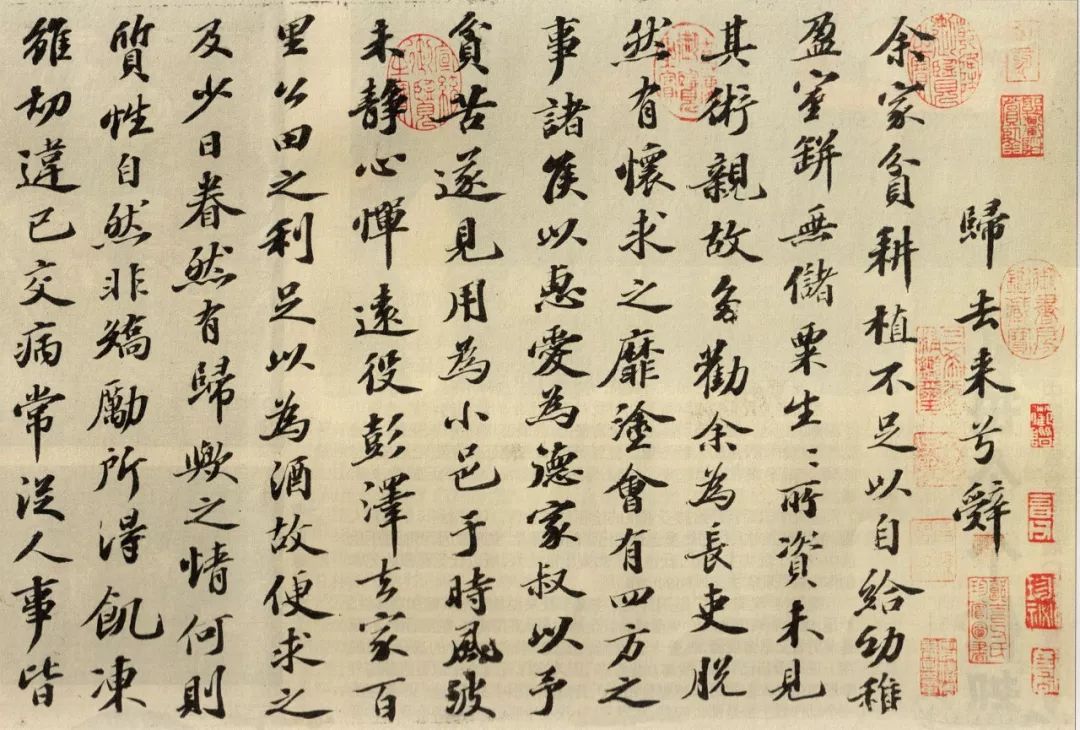 歸去来兮辭
余家貧耕植不足以自給幼稚
盈室缾無儲粟生〻所資未見
其術親故多勸余為長吏脱
然有懷求之靡塗會有四方之
事諸侯以惠愛為德家叔以予
貧苦遂見用為小邑于時風波
未静心憚遠役彭澤去家百
里公田之利足以為酒故便求之
及少日眷然有歸歟之情何則
質性自然非矯勵所得飢凍
雖切違己交病常從人事皆